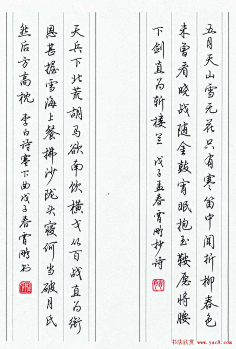 五月天山雪无花只有寒笛中闻折柳春色
未曾看晓战随金鼓宵眠抱玉鞍愿将腰
下剑直为斩楼兰 戊子孟春霄鹏抄诗
天兵下北荒胡马欲南饮横戈从百战直为衔
恩甚握雪海上餐拂沙陇头寝何当破月氏
然后方高枕 李白诗塞下曲戊子春霄鹏书